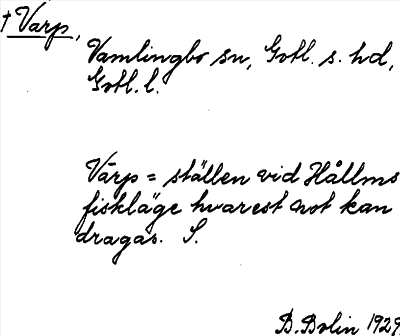 † Varp,
Vamlingbo sn, Gotl. s. hd,
Gotl. l.
Varp = ställen vid Hållms
fiskläge hvarest not kan
dragas. S.
B. Bolin 1929